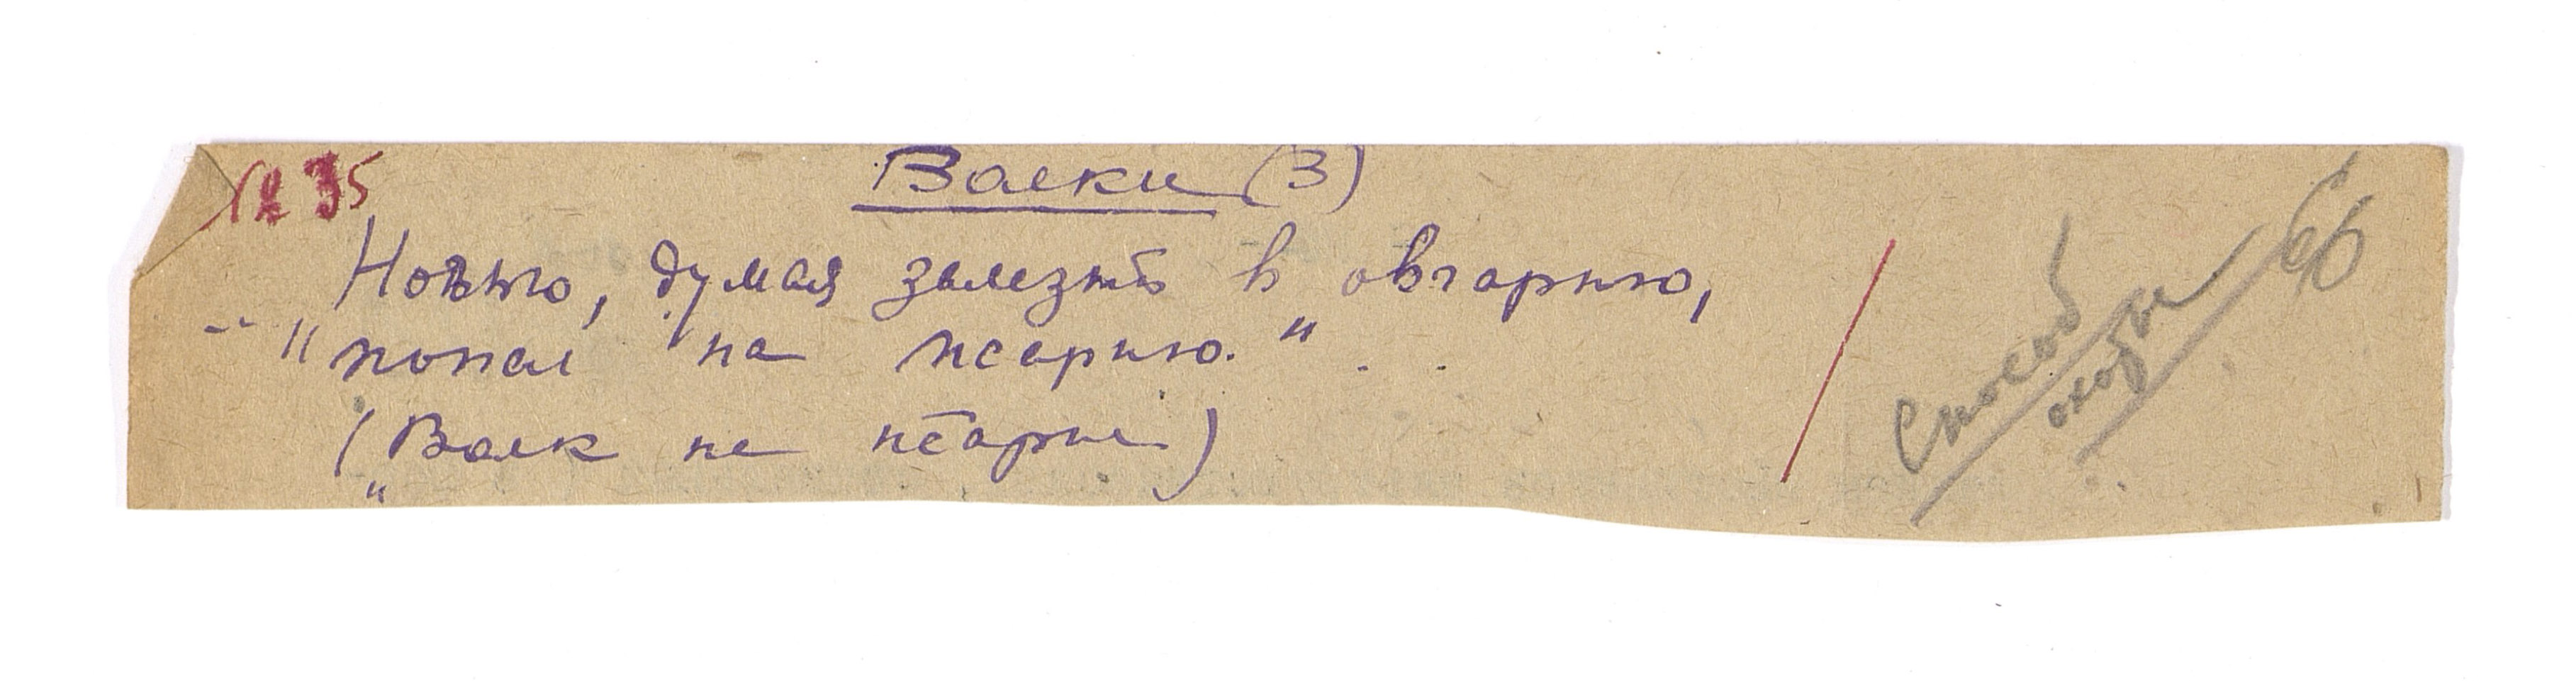 № 35
Волки (3)
Ночью, думая залезть в овчарню,
"попал на псарню."
("Волк на псарне)
Способ
охоты
66